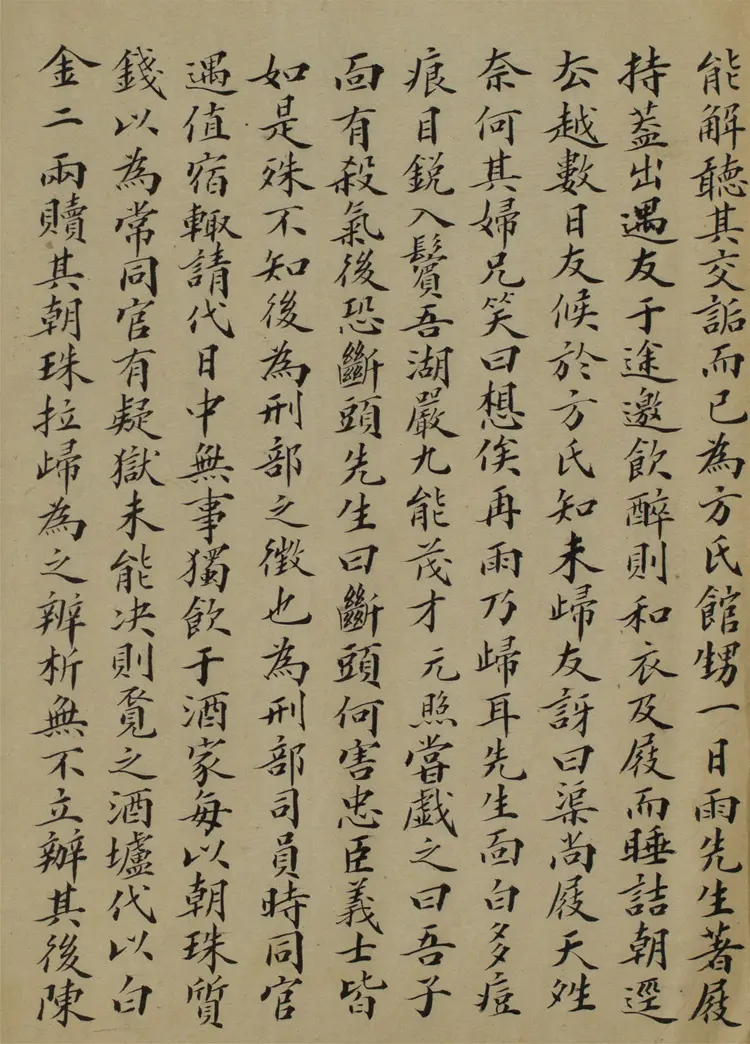 能解聽其交詬而已為方氏館甥一日雨先生著屐
持葢出遇友于途邀飲醉則和衣及屐而睡詰朝逕
去越數日友候於方氏知未歸友訝曰渠尚屐天姓
奈何其婦兄笑曰想俟再雨乃歸耳先生面白多痘
痕目銳入鬢吾湖嚴九能茂才元照嘗戲之曰吾子
面有殺氣後恐斷頭先生曰斷頭何害忠臣義士皆
如是殊不知後為刑部之徵也為刑部司員時同官
遇值宿輙請代日中無事獨飲于酒家每以朝珠質
錢以為常同官有疑獄未能决則覓之酒壚代以白
金二兩贖其朝珠拉歸為之辨析無不立辦其後陳